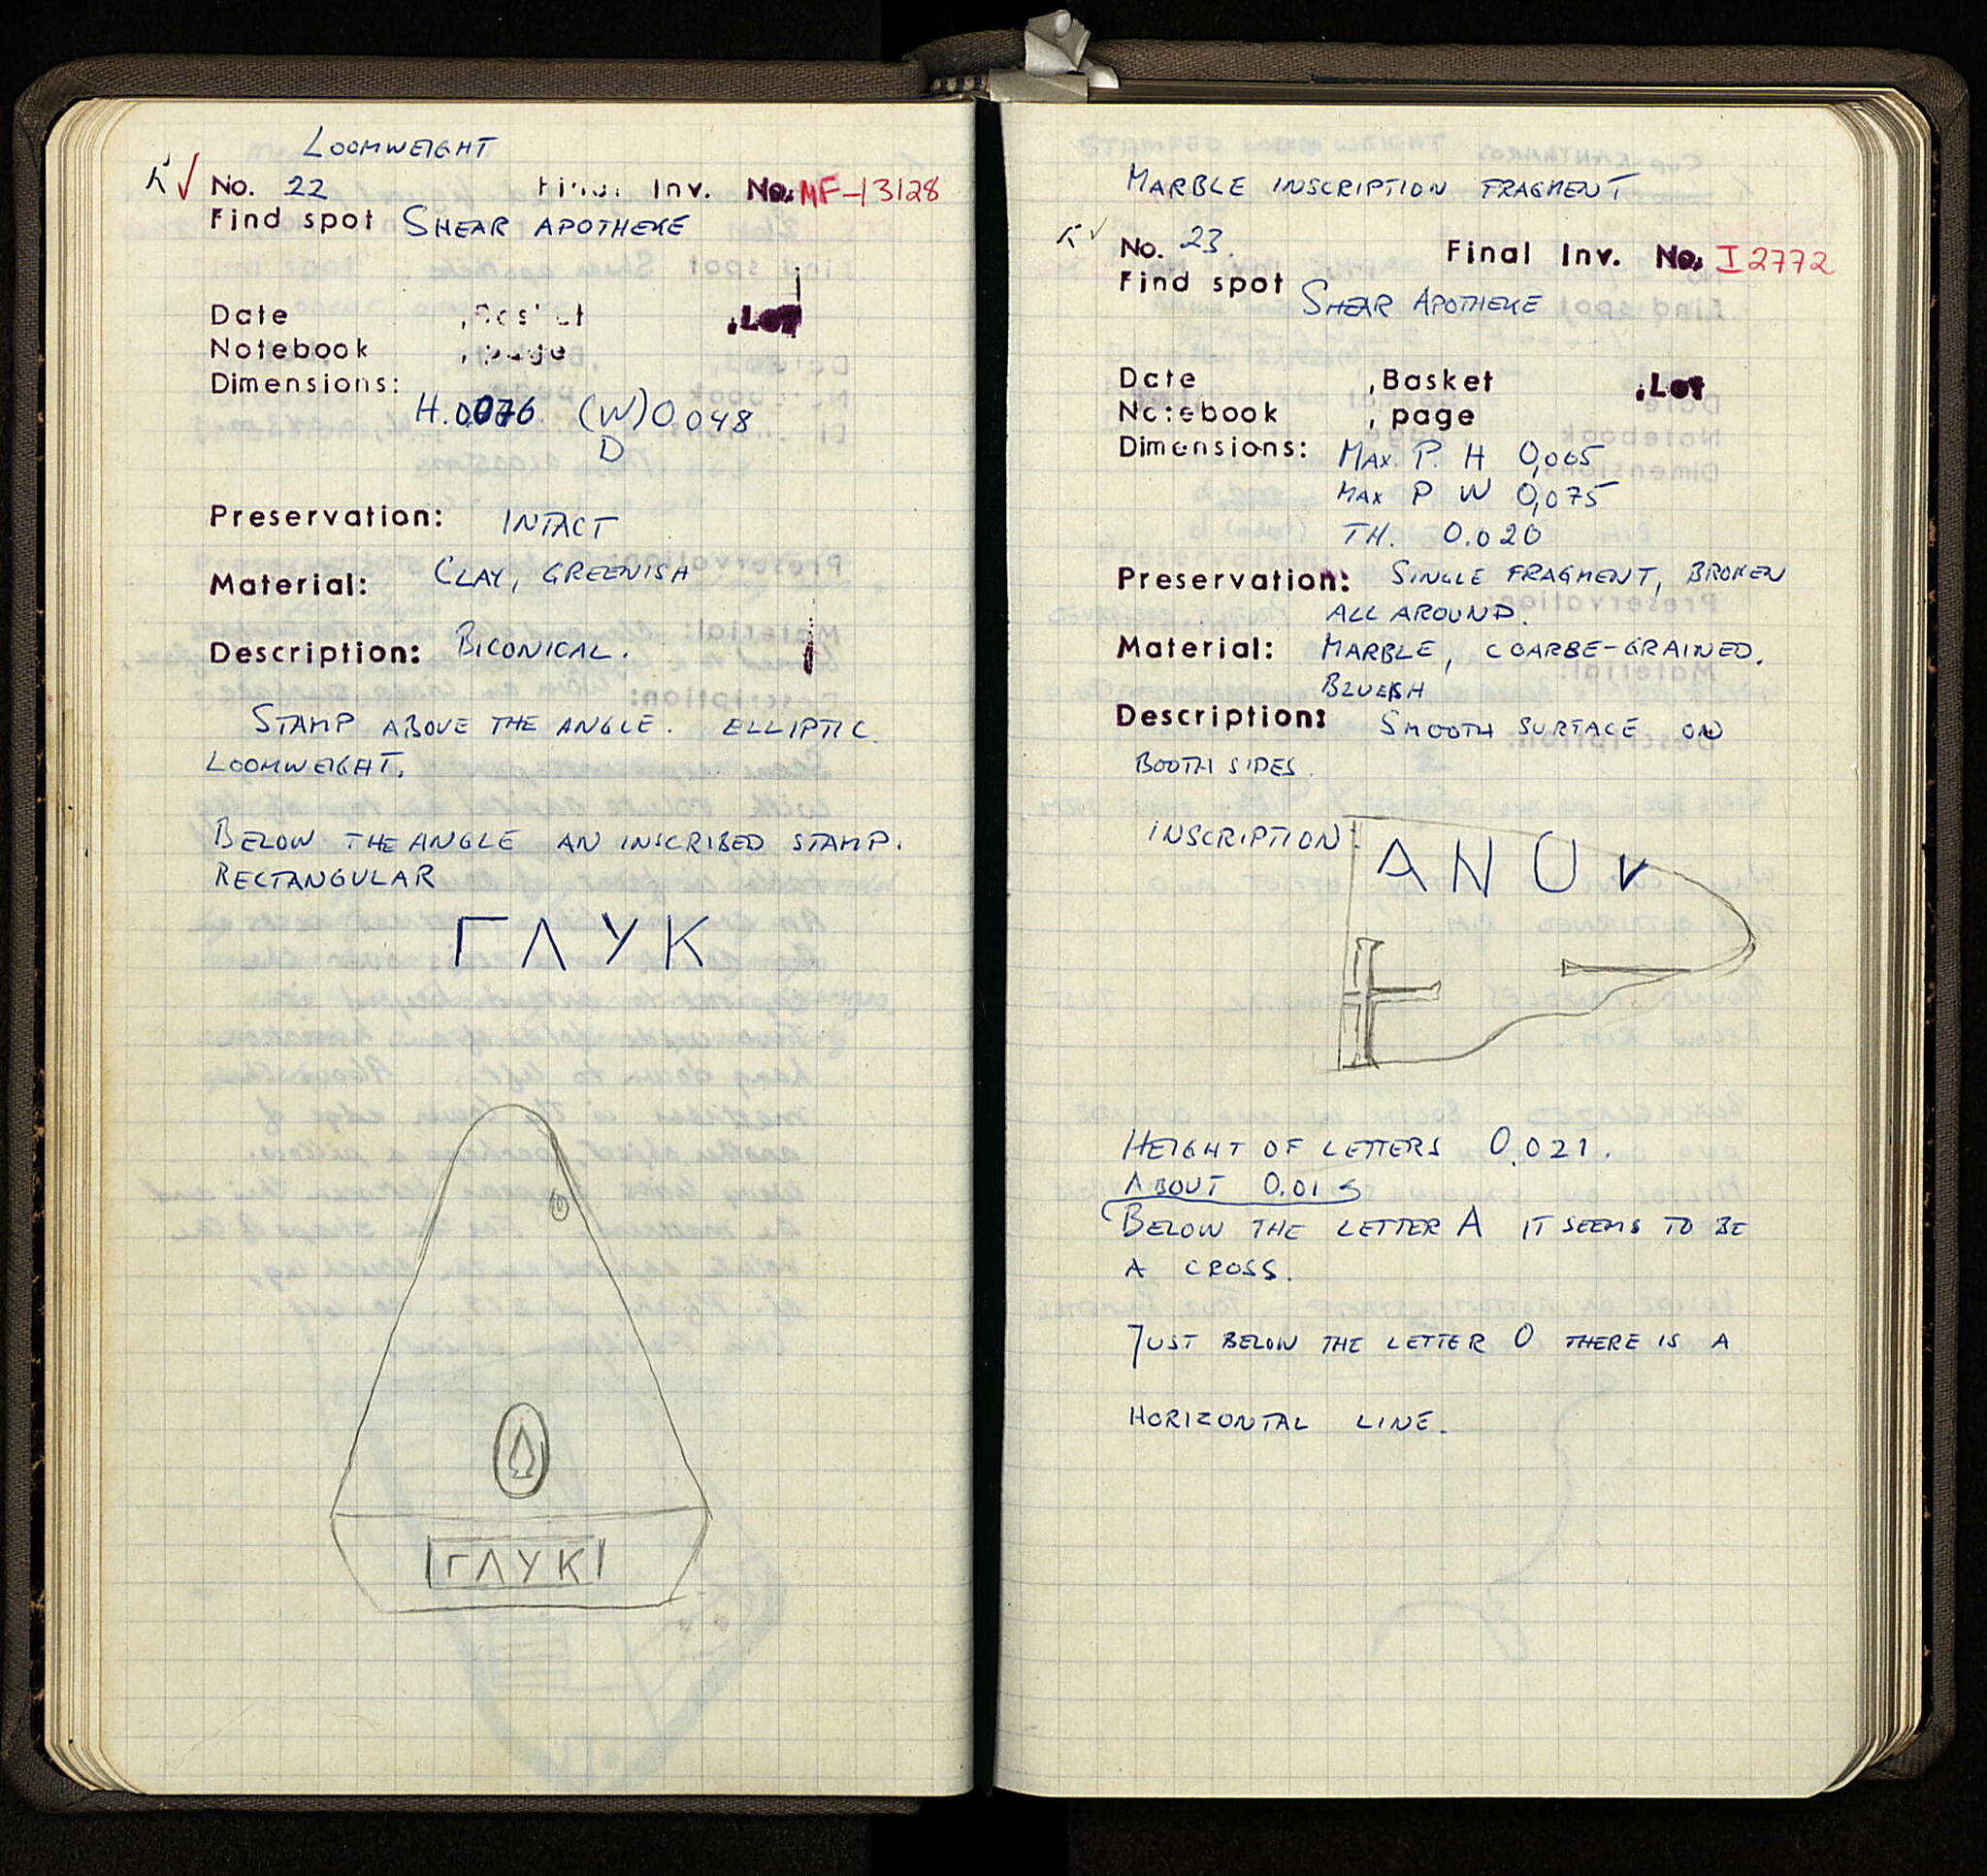 LOOMWEIGHT
K ✓ No. 22 Final Inv. No. MF-13128
Find spot SHEAR APOTHEKE
Date , Basket , Lot
Notebook , page
Dimensions:
H. 0.076 (W) 0.048
D
Preservation: INTACT
Material: CLAY, GREENISH
Description: BICONICAL.
STAMP ABOVE THE ANGLE. ELLIPTIC.
LOOMWEIGHT.
BELOW THE ANGLE AN INSCRIBED STAMP.
RECTANGULAR
ΓΛΥΚ
ΓΛΥΚ
MARBLE INSCRIPTION FRAGMENT
K ✓ No. 23. Final Inv. No. I 2772
Find spot SHEAR APOTHEKE
Date , Basket , Lot
Notebook , page
Dimensions: MAX. P. H 0,065
MAX P W 0,075
TH. 0.020
Preservation: SINGLE FRAGMENT, BROKEN
ALL AROUND.
Material: MARBLE, COARSE-GRAINED.
BLUEISH
Description: SMOOTH SURFACE ON
BOOTH SIDES.
INSCRIPTION: A N O v
HEIGHT OF LETTERS 0.021.
ABOUT 0.015
BELOW THE LETTER A IT SEEMS TO BE
A CROSS.
JUST BELOW THE LETTER O THERE IS A
HORIZONTAL LINE.